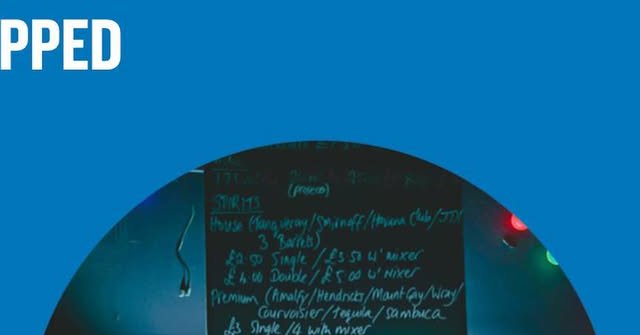 PPED
(prosecco)
SPIRITS
House (Tanqueray/Smirnoff/Havana Club/JD/
3 Barrels)
£2.50 Single / £3.50 w' mixer
£4.00 Double / £5.00 w' mixer
Premium (Amalfy/Hendricks/Mount Gay/Wray/
Courvoisier/Tequila/Sambuca
£3 Single / 4 with mixer